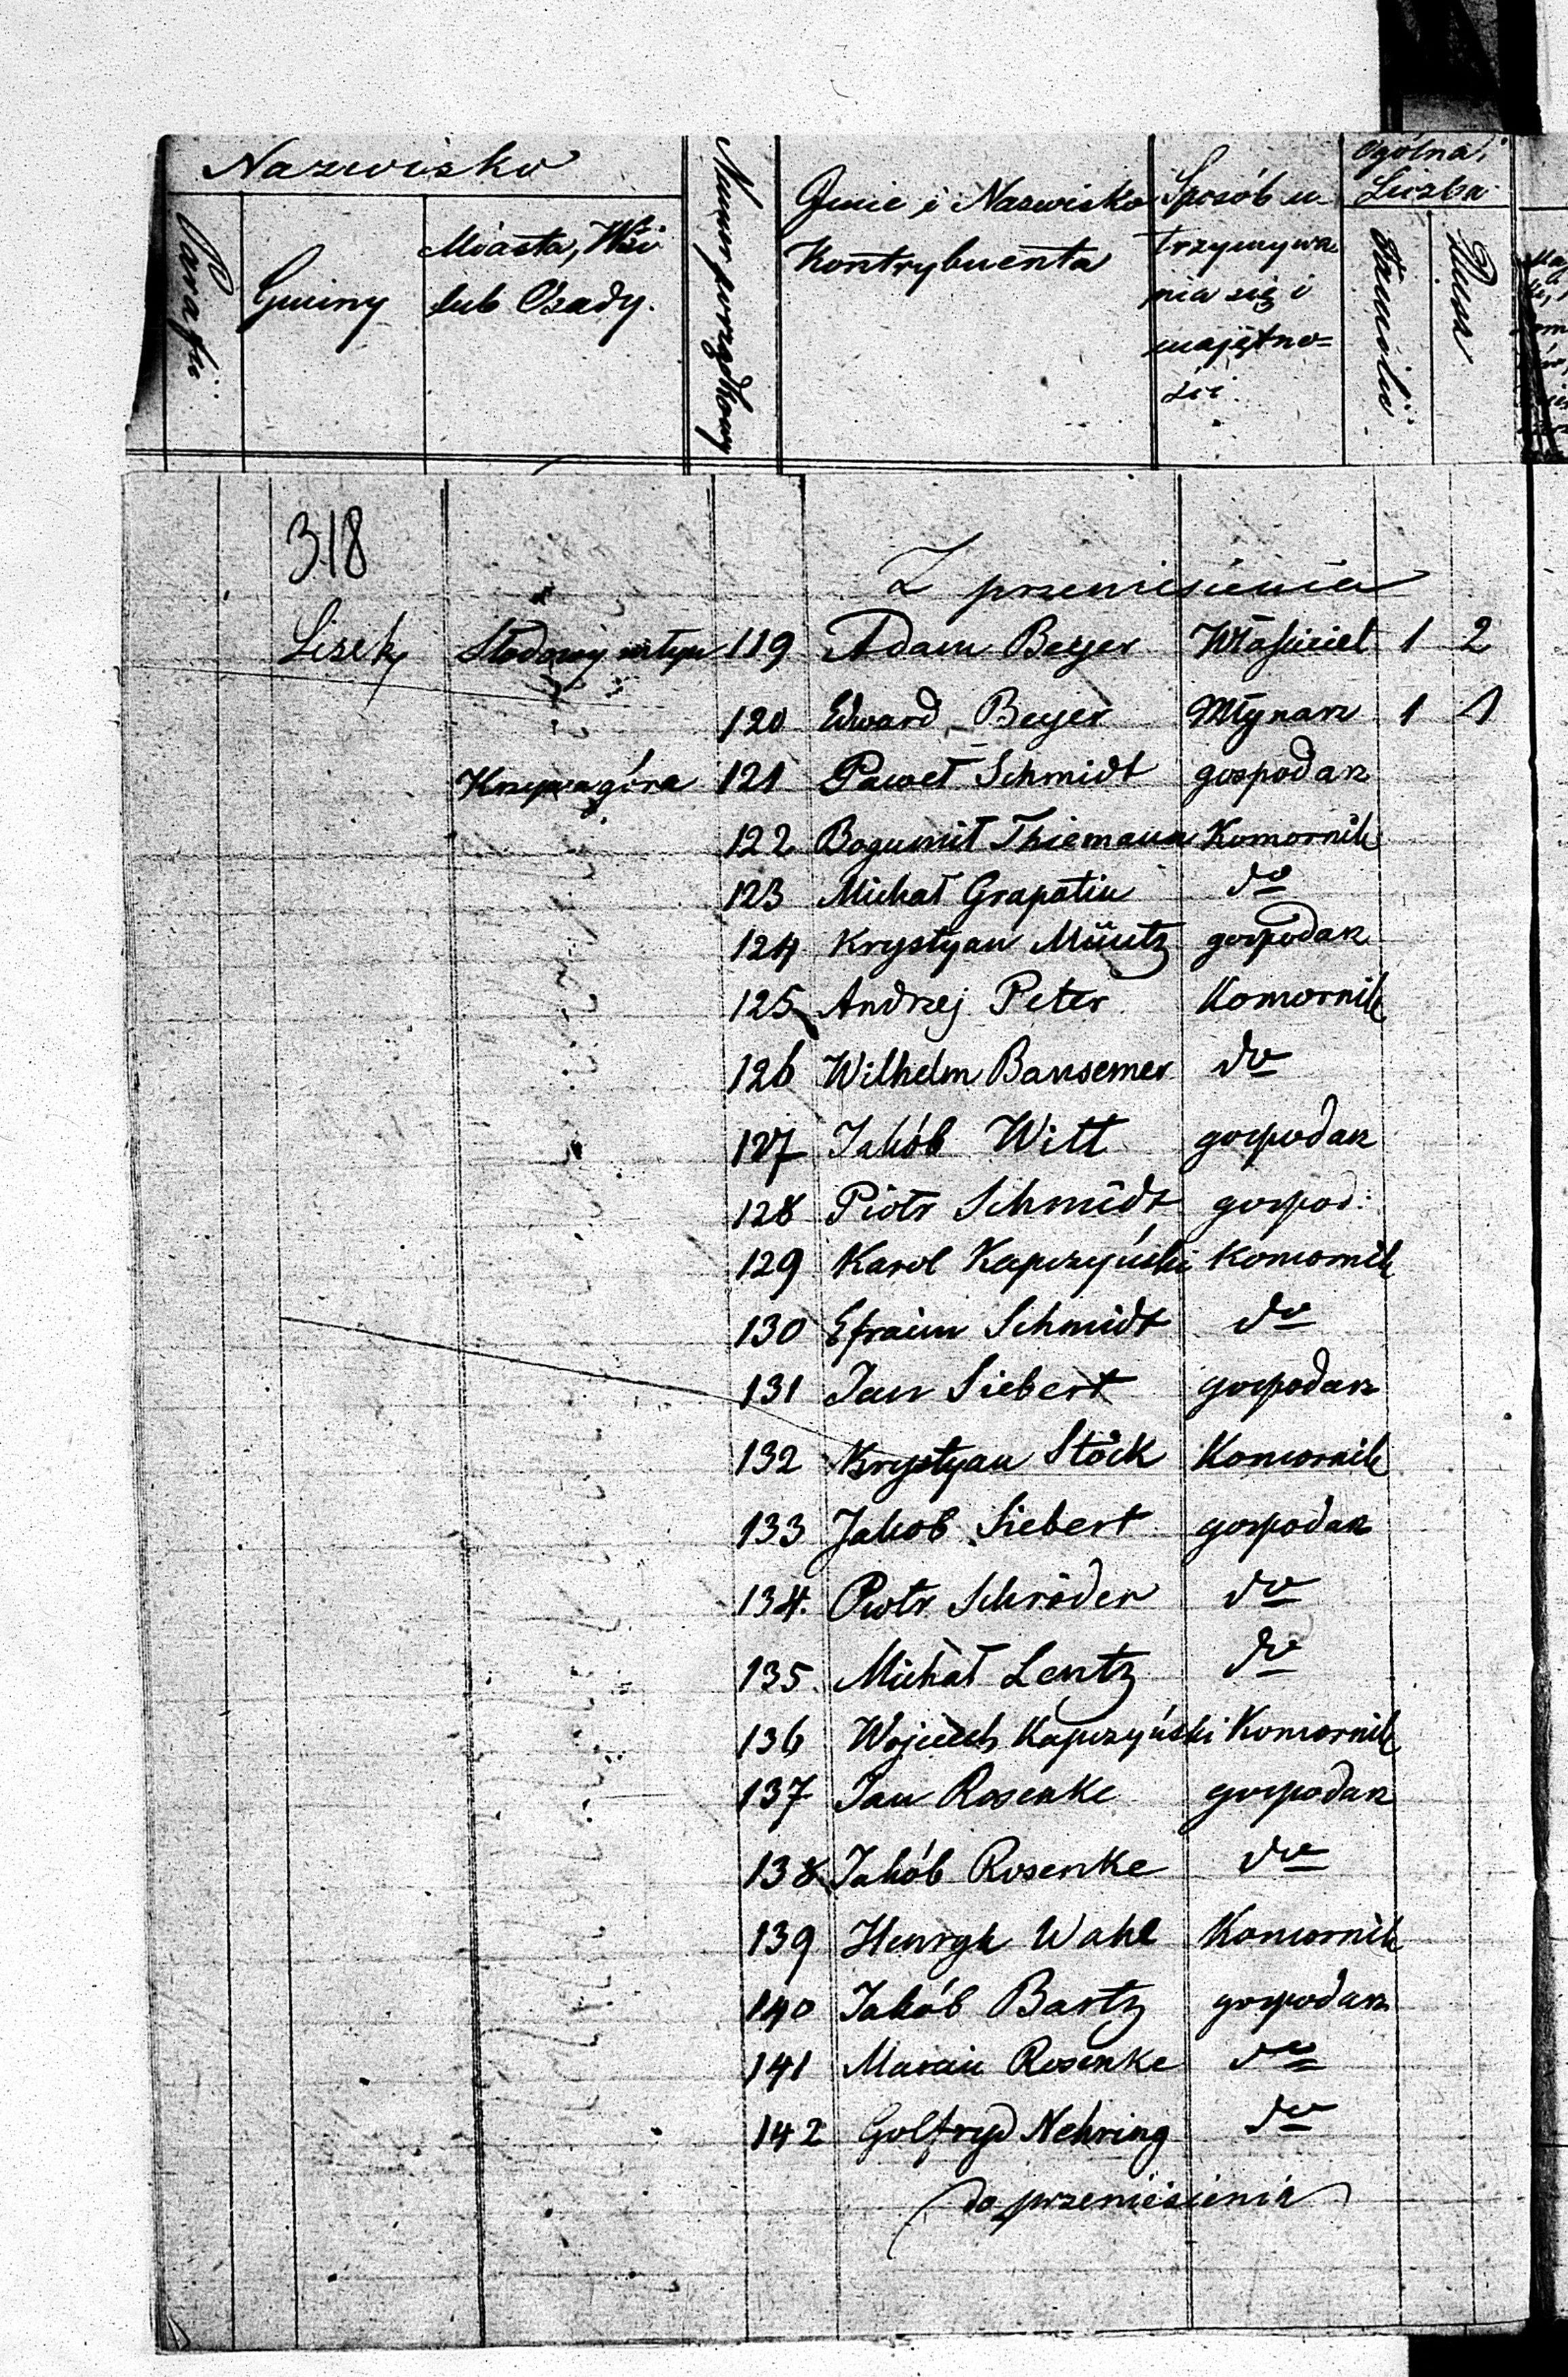 Nazwisko
Parafii
Gminy
Miasta, Wsi
lub Osady.
Numer porządkowy
Imie i Nazwisko
Kontrybuenta
Sposób u-
trzymywa
nia się i
majętno=
ści.
Ogólna
Liczba
Familii
Dusz
318
Z przeniesienia
Lisek Słodowy młyn 119 Adam Beyer Właściciel 1 2
120 Edward Beyer Młynarz 1 1
Krzywagóra 121 Paweł Schmidt gospodarz
122 Bogumił Thiemann Komornik
123 Michał Grapatin do
124 Krystyan Müntz gospodarz
125 Andrzej Peter Komornik
126 Wilhelm Bansemer do
127 Jakób Witt gospodarz
128 Piotr Schmidt gospod:
129 Karol Kapczyński Komornik
130 Efraim Schmidt do
131 Jan Siebert gospodarz
132 Krystyan Stöck Komornik
133 Jakob Siebert gospodarz
134. Piotr Schröder do
135. Michał Lentz do
136 Wojciech Kapczyński Komornik
137 Jan Rosenke gospodarz
138 Jakób Rosenke do
139 Henryk Wahl Komornik
140 Jakób Bartz gospodarz
141 Marcin Rosenke do
142 Golfryd Nehring do
do przeniesienia